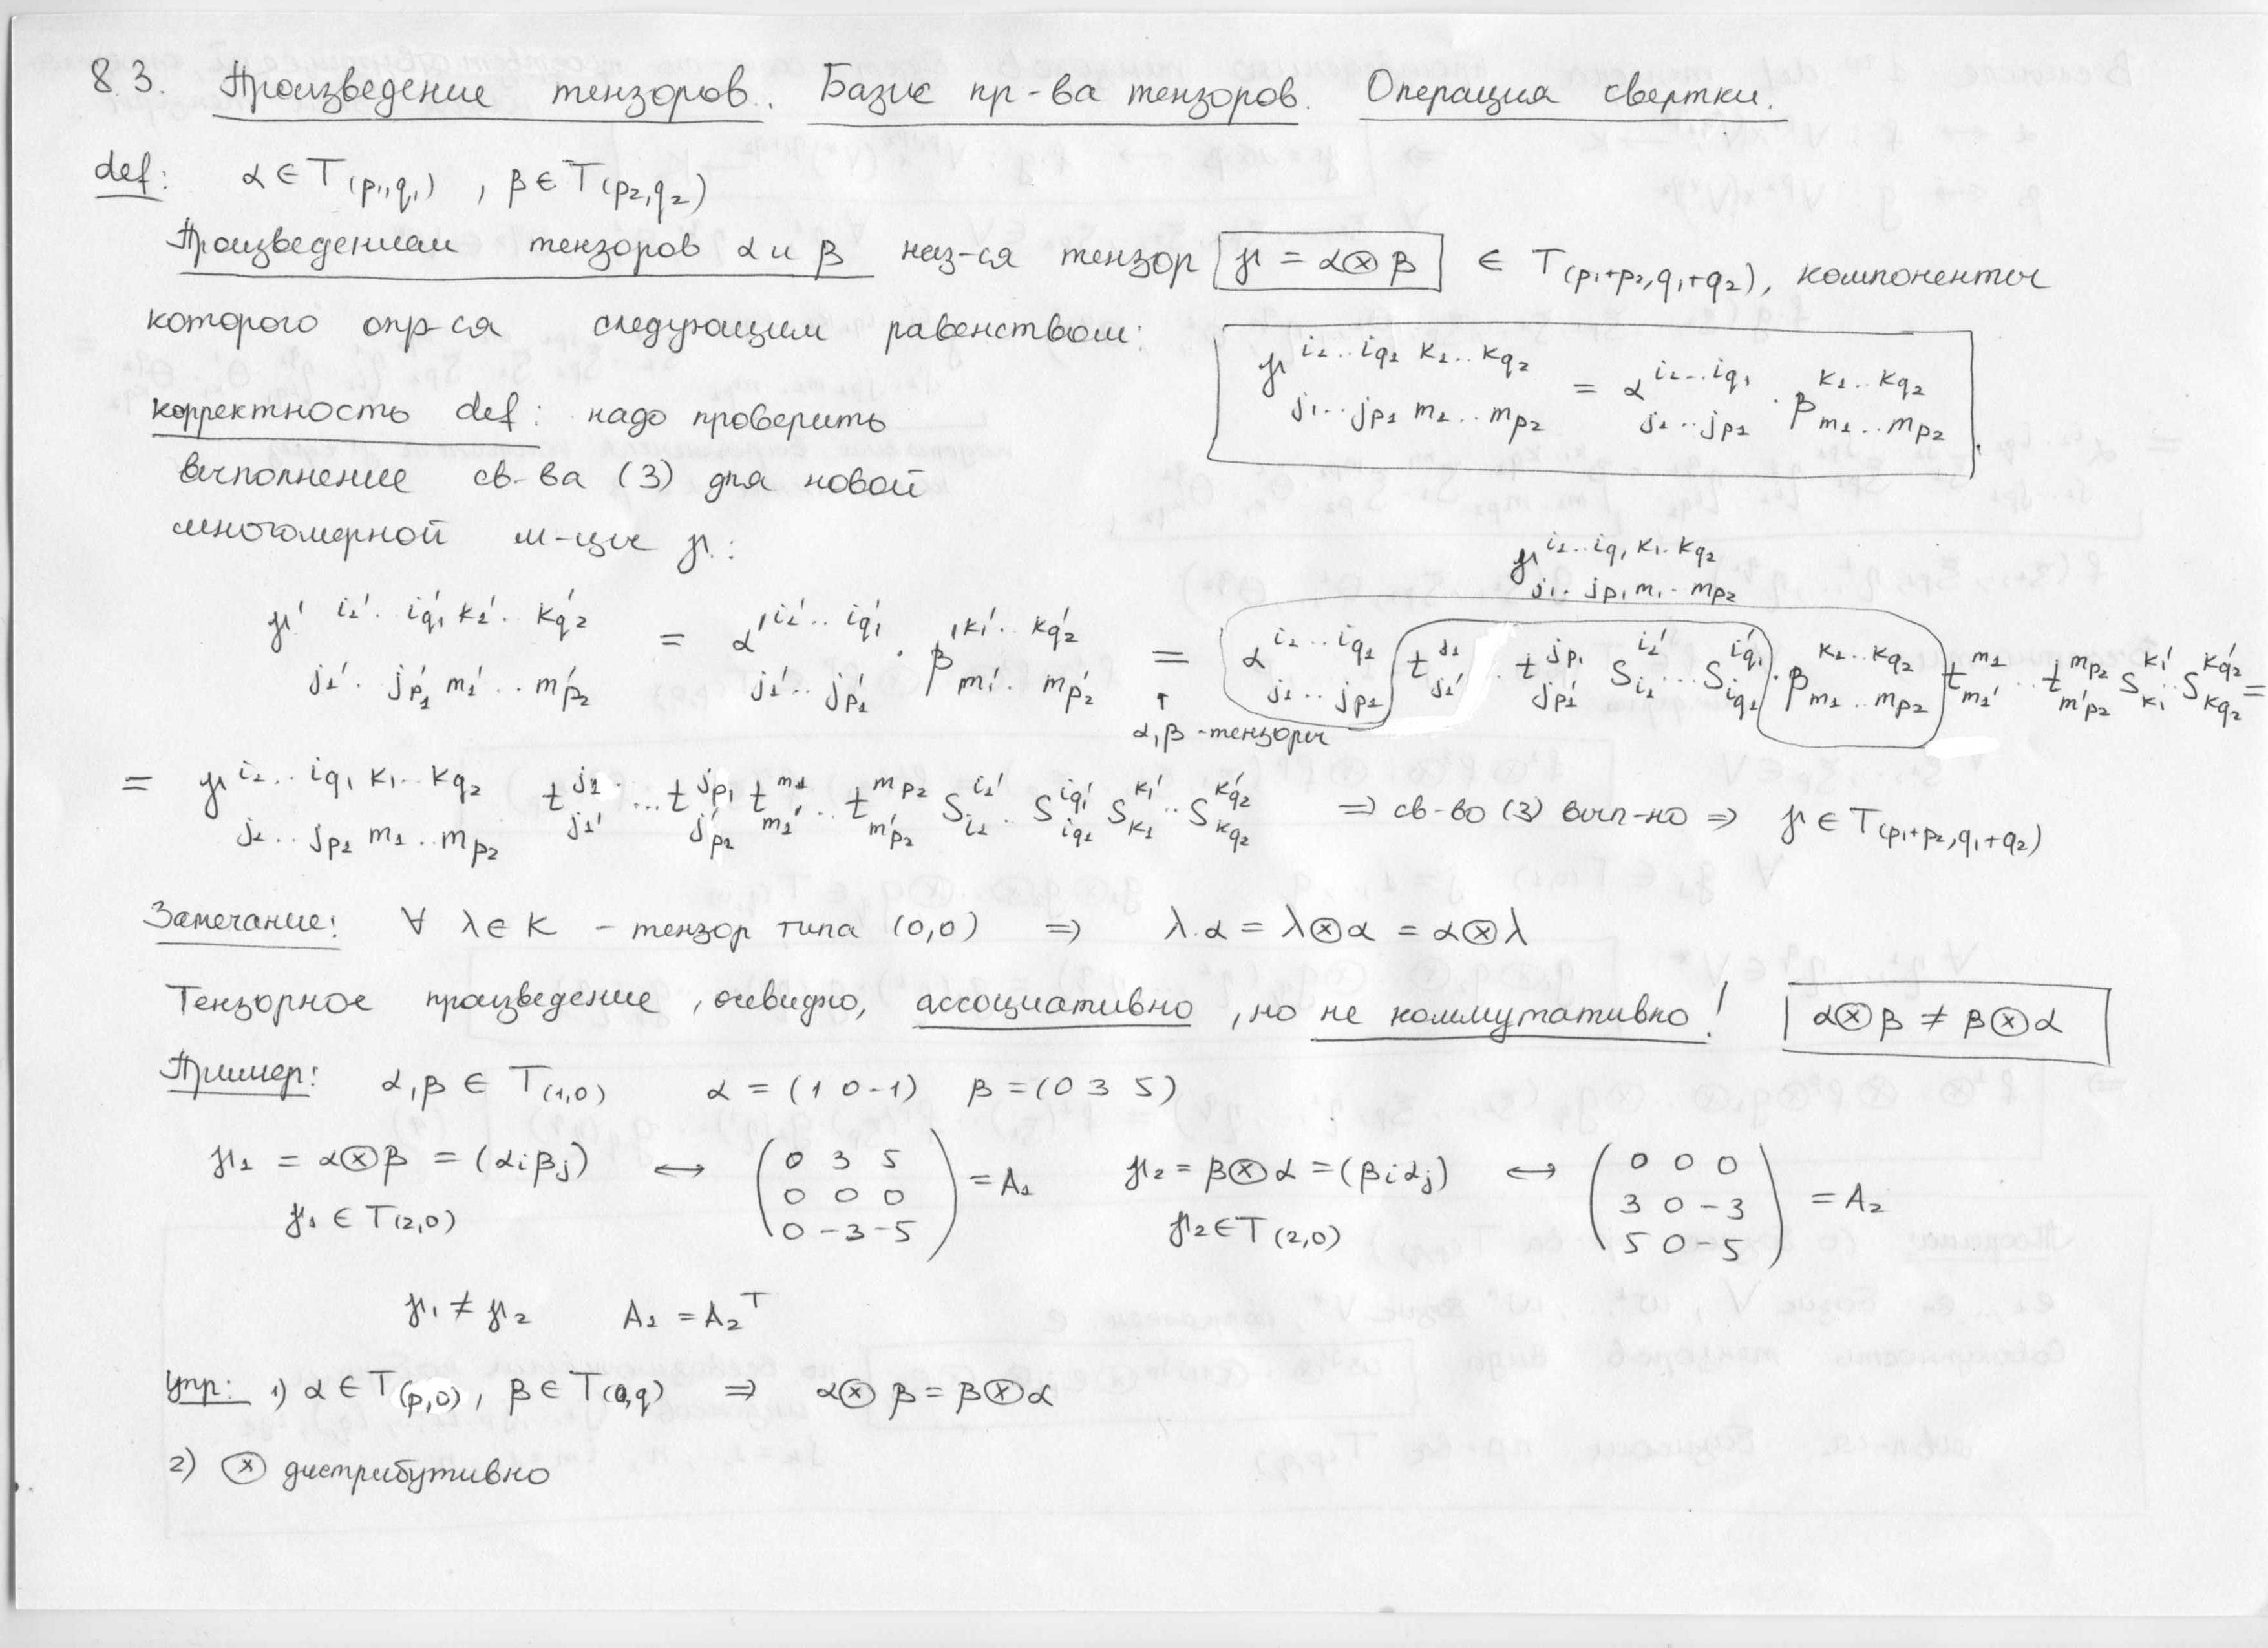 8.3. Произведение тензоров. Базис пр-ва тензоров. Операция свертки.
def: α ∈ T(p₁,q₁) , β ∈ T(p₂,q₂)
Произведением тензоров α и β наз-ся тензор γ = α⊗β ∈ T(p₁+p₂,q₁+q₂), компоненты
которого опр-ся следующим равенством:
γ^{i₁..iq₁ k₁..kq₂}_{j₁..jp₁ m₁..mp₂} = α^{i₁..iq₁}_{j₁..jp₁} · β^{k₁..kq₂}_{m₁..mp₂}.
корректность def: надо проверить
выполнение св-ва (3) для новой
многомерной м-цы γ:
γ^{i₁..iq₁ k₁..kq₂}_{j₁..jp₁ m₁..mp₂}
γ'^{i₁'..iq₁' k₁'..kq₂'}_{j₁'..jp₁' m₁'..mp₂'} = α'^{i₁'..iq₁'}_{j₁'..jp₁'} · β'^{k₁'..kq₂'}_{m₁'..mp₂'} = α^{i₁..iq₁}_{j₁..jp₁} t^{j₁}_{j₁'}..t^{jp₁}_{jp₁'} s^{i₁'}_{i₁}...s^{iq₁'}_{iq₁} · β^{k₁..kq₂}_{m₁..mp₂} t^{m₁}_{m₁'}..t^{mp₂}_{m'p₂} s^{k₁'}_{k₁}..s^{kq₂'}_{kq₂} =
↑
α,β - тензоры
= γ^{i₁..iq₁ k₁..kq₂}_{j₁..jp₁ m₁..mp₂} t^{j₁}_{j₁'}...t^{jp₁}_{j'p₁} t^{m₁}_{m₁'}..t^{mp₂}_{m'p₂} s^{i₁'}_{i₁}..s^{iq₁'}_{iq₁} s^{k₁'}_{k₁}..s^{kq₂'}_{kq₂} ⇒ св-во (3) вып-но ⇒ γ ∈ T(p₁+p₂,q₁+q₂)
Замечание: ∀ λ ∈ K - тензор типа (0,0) ⇒ λ·α = λ⊗α = α⊗λ
Тензорное произведение, очевидно, ассоциативно, но не коммутативно! α⊗β ≠ β⊗α
Пример: α,β ∈ T(1,0) α = (1 0 -1) β = (0 3 5)
γ₁ = α⊗β = (αᵢβⱼ) ↔ (0 3 5
0 0 0
0 -3 -5) = A₁
γ₁ ∈ T(2,0)
γ₂ = β⊗α = (βᵢαⱼ) ↔ (0 0 0
3 0 -3
5 0 -5) = A₂
γ₂ ∈ T(2,0)
γ₁ ≠ γ₂ A₁ = A₂ᵀ
Упр: 1) α ∈ T(p,0), β ∈ T(0,q) ⇒ α⊗β = β⊗α
2) ⊗ дистрибутивно